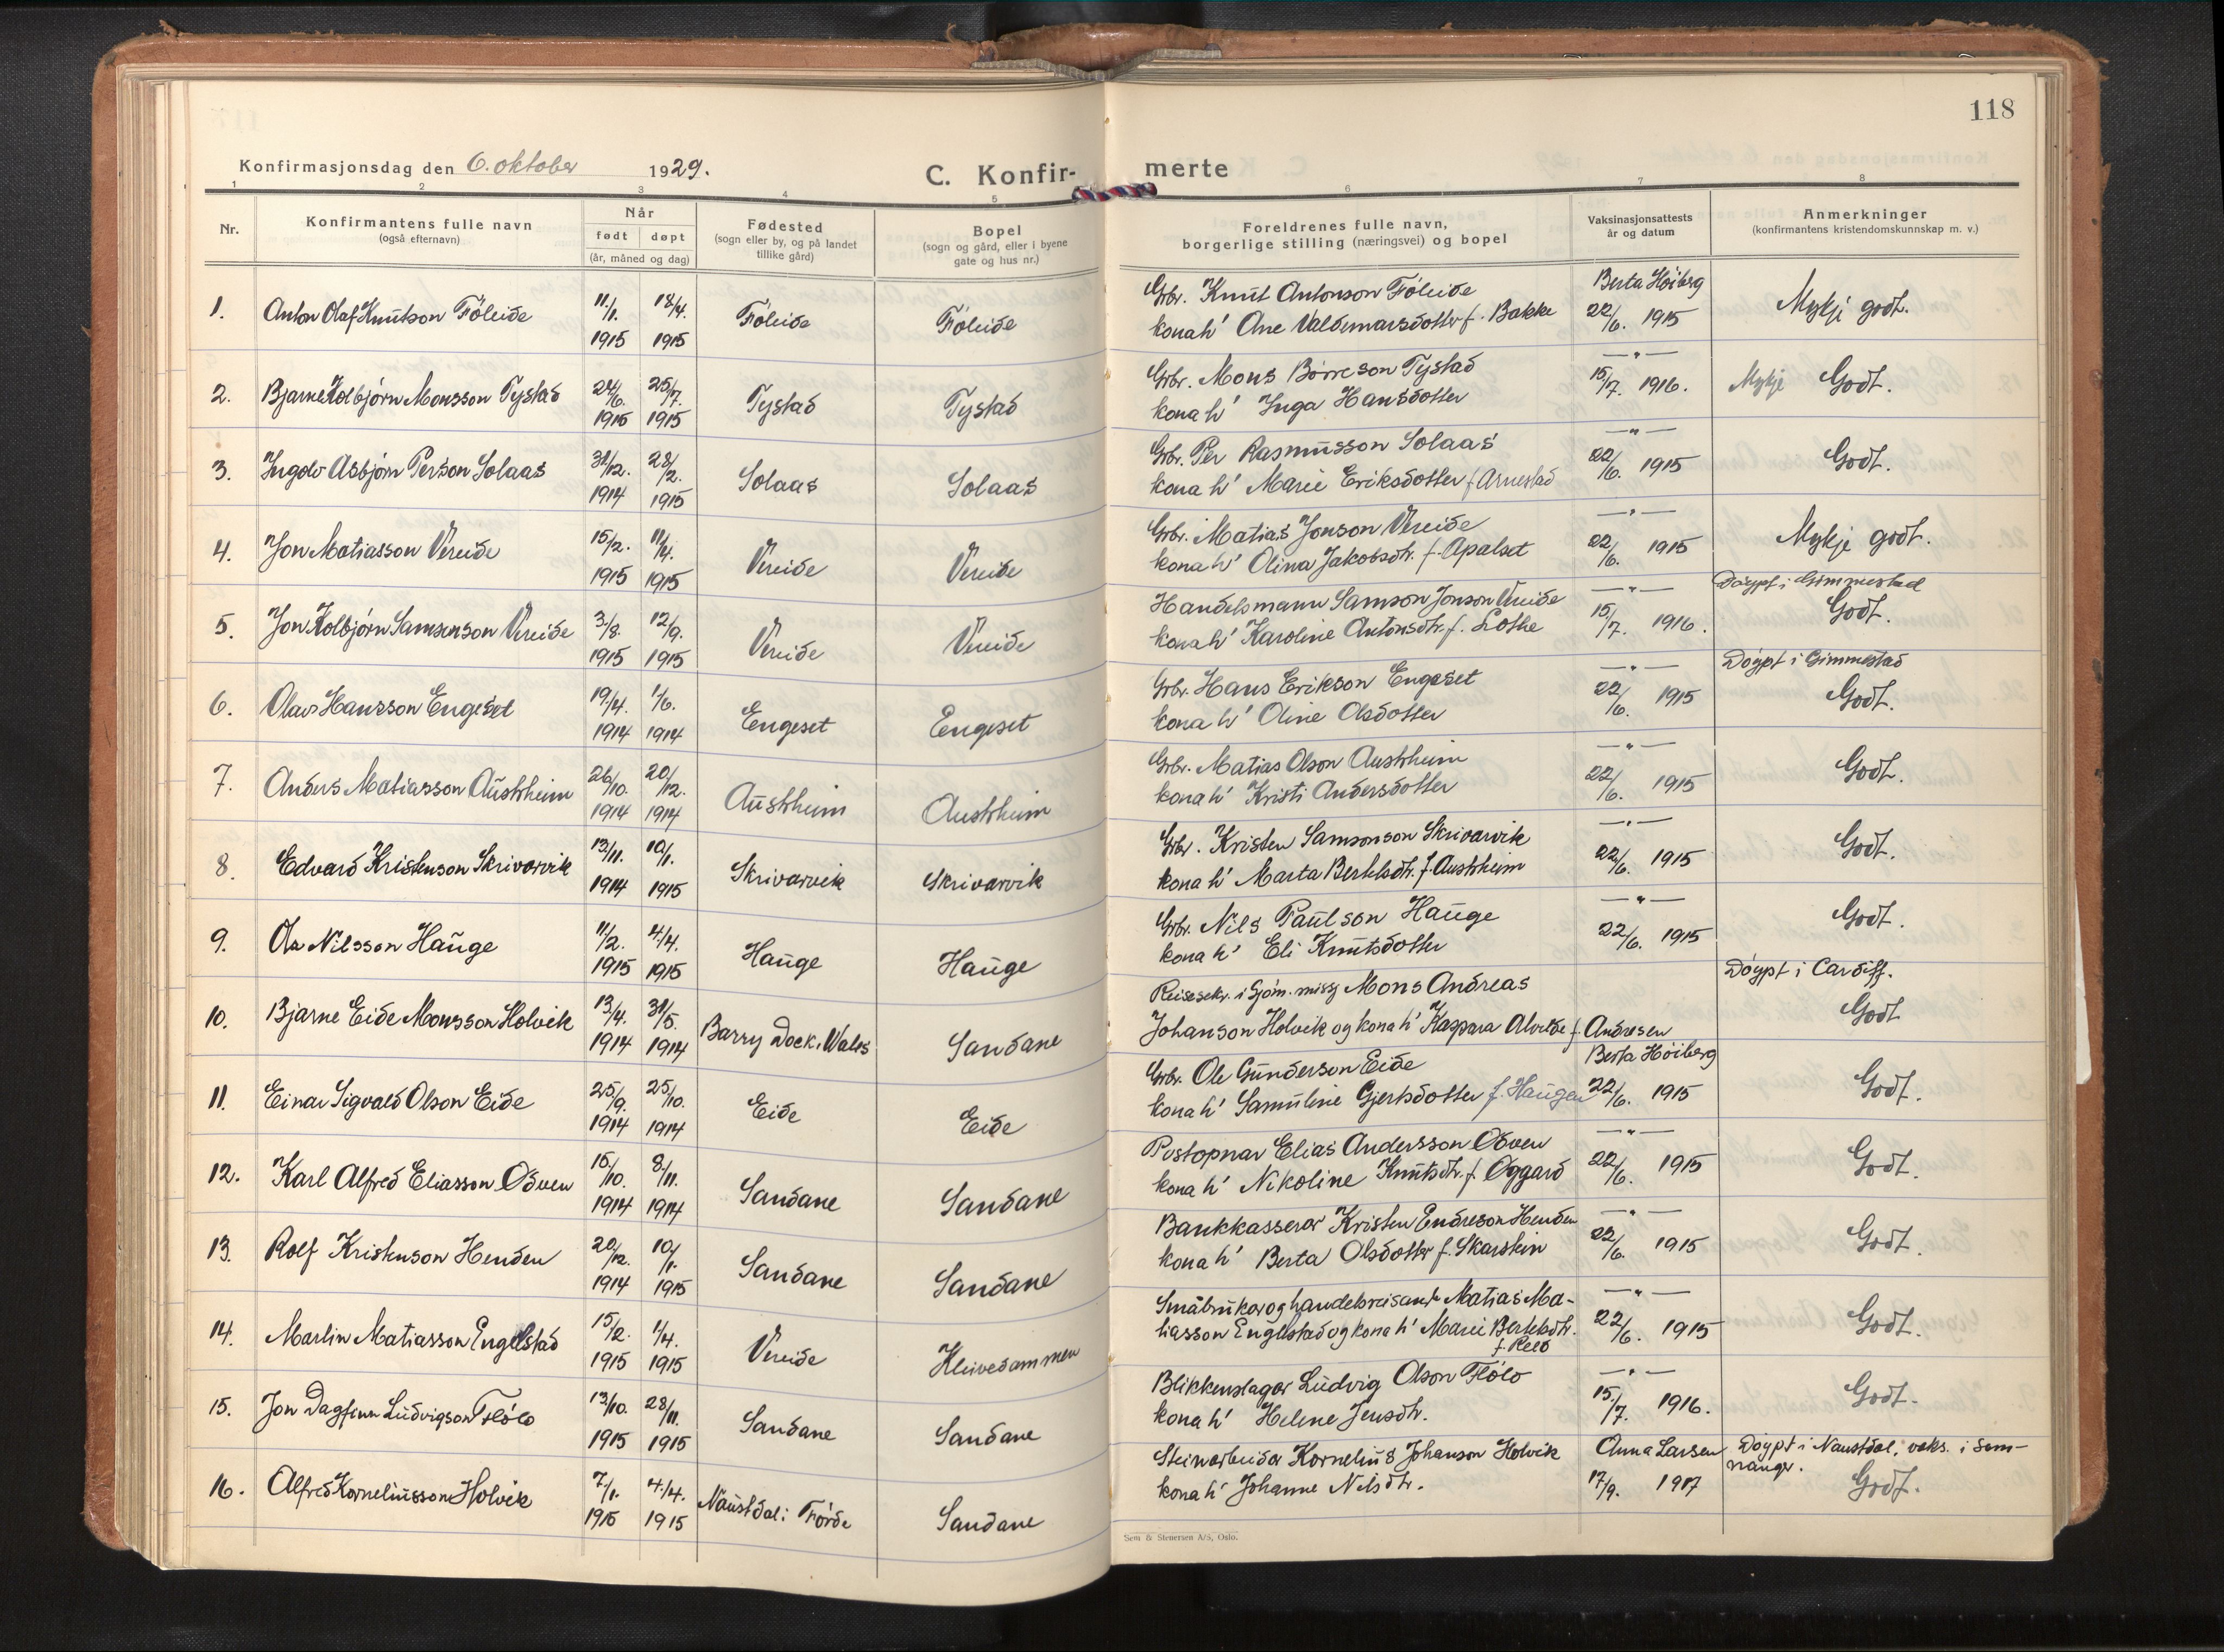 118
Konfirmasjonsdag den 6. oktober 1929.
C. Konfir-
merte
1 2 3 4 5 6 7 8
Nr.
Konfirmantens fulle navn
(også efternavn)
Når
født døpt
(år, måned og dag)
Fødested
(sogn eller by, og på landet
tillike gård)
Bopel
(sogn og gård, eller i byene
gate og hus nr.)
Foreldrenes fulle navn,
borgerlige stilling (næringsvei) og bopel
Vaksinasjonsattests
år og datum
Anmerkninger
(konfirmantens kristendomskunnskap m. v.)
1. Anton Olaf Knutson Föleide 11/1. 1915 18/4. 1915 Föleide Föleide
Gbr. Knut Antonson Föleide
kona h' Ane Valdemarsdotter f. Bakke
Berta Höiberg
22/6. 1915
Mykje godt.
2. Bjarne Kolbjørn Monsson Tystad 24/6. 1915 25/7. 1915 Tystad Tystad
Gbr. Mons Börreson Tystad
kona h' Inga Hansdotter
—"—
15/7. 1916.
Mykje Godt.
3. Ingolv Asbjørn Person Solaas 31/12. 1914 28/2. 1915 Solaas Solaas
Gbr. Per Rasmusson Solaas
kona h' Marie Eriksdotter f Arnestad
—"—
22/6. 1915
Godt.
4. Jon Matiasson Vereide 15/2. 1915 11/4. 1915 Vereide Vereide
Gbr. Matias Jonson Vereide
kona h' Olina Jakobsdtr. f. Apalset
—"—
22/6. 1915
Mykje godt.
5. Jon Kolbjørn Samsonson Vereide 3/8. 1915 12/9. 1915 Vereide Vereide
Handelsmann Samson Jonson Vereide
kona h' Karoline Antonsdtr. f. Lothe
—"—
15/7. 1916.
Döypt i Gimmestad
Godt.
6. Olav Hansson Engeset 19/4. 1914 1/6. 1914 Engeset Engeset
Gbr. Hans Erikson Engeset
kona h' Oline Olsdotter
—"—
22/6. 1915
Döypt i Gimmestad
Godt.
7. Anders Matiasson Austrheim 26/10. 1914 20/12. 1914 Austrheim Austrheim
Gbr. Matias Olson Austrheim
kona h' Kristi Andersdotter
—"—
22/6. 1915
Godt.
8. Edvard Kristenson Skrivarvik 13/11. 1914 10/1. 1915 Skrivarvik Skrivarvik
Gbr. Kristen Samsonson Skrivarvik
kona h' Marta Bertelsdtr. f. Austrheim
—"—
22/6. 1915
Godt.
9. Ola Nilsson Hauge 11/2. 1915 4/4. 1915 Hauge Hauge
Gbr. Nils Paulson Hauge
kona h' Eli Knutsdotter
—"—
22/6. 1915
Godt.
10. Bjarne Eide Monsson Holvik 13/4. 1914 31/5. 1914 Barry Dock, Wales Sandane
Reisesekr. i Sjöm. missj Mons Andreas
Johanson Holvik og kona h' Kaspara Alvilde f. Andresen
Döypt i Cardiff.
Godt
11. Einar Sigvald Olson Eide 25/9. 1914 25/10. 1914 Eide Eide
Gbr. Ole Gunderson Eide
kona h' Samuline Gjertsdotter f. Haugen
Berta Höiberg
22/6. 1915
Godt.
12. Karl Alfred Eliasson Ödven 15/10. 1914 8/11. 1914 Sandane Sandane
Postopnar Elias Andersson Ödven
kona h' Nikoline Knutsdtr. f Öggard
—"—
22/6. 1915
Godt.
13. Rolf Kristenson Henden 20/12. 1914 10/1. 1915 Sandane Sandane
Bankkasserar Kristen Endreson Henden
kona h' Berta Olsdotter f. Skarstein
—"—
22/6. 1915
Godt.
14. Martin Matiasson Engelstad 15/2. 1915 1/4. 1915 Vereide Kleivedammen
Småbrukar og handelsreisande Matias Ma-
tiasson Engelstad og kona h' Marie Bertelsdtr.
f. Reed
—"—
22/6. 1915
Godt.
15. Jon Dagfinn Ludvigson Flölo 13/10. 1915 28/11. 1915 Sandane Sandane
Blikkenslagar Ludvig Olson Flölo
kona h' Helene Jensdtr.
—"—
15/7. 1916.
Godt.
16. Alfred Korneliusson Holvik 7/1. 1915 4/4. 1915 Naustdal i Förde Sandane
Steinarbeidar Kornelius Johanson Holvik
kona h' Johanne Nilsdtr.
Anna Larsen
17/9. 1917
Döypt i Naustdal, vaks. i Sam-
nanger.
Godt.
Sem & Stenersen A/S, Oslo.